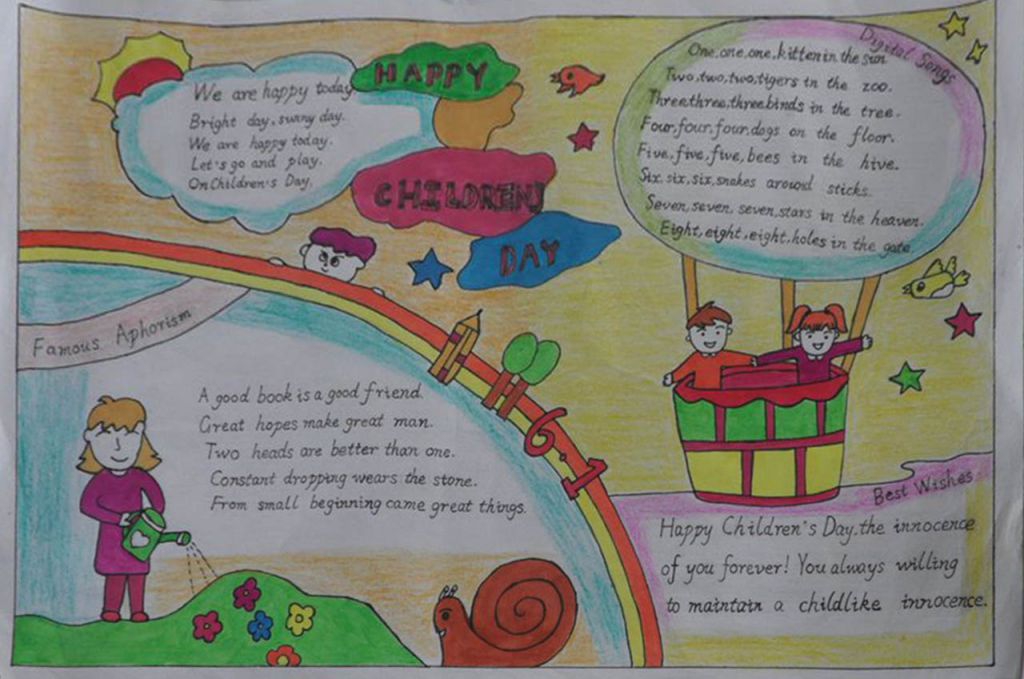 HAPPY
CHILDREN'S
DAY
We are happy today
Bright day, sunny day.
We are happy today.
Let's go and play.
On Children's Day,
Digital Songs
One,one,one,kitten in the sun
Two,two,two,tigers in the zoo.
Three,three,three,binds in the tree.
Four,four,four,dogs on the floor.
Five,five,five,bees in the hive.
Six,six,six,snakes around sticks.
Seven,seven,seven,stars in the heaven.
Eight,eight,eight,holes in the gate.
Famous Aphorism
A good book is a good friend.
Great hopes make great man.
Two heads are better than one.
Constant dropping wears the stone.
From small beginning came great things.
6.1
Best Wishes
Happy Children's Day,the innocence
of you forever! You always willing
to maintain a childlike innocence.